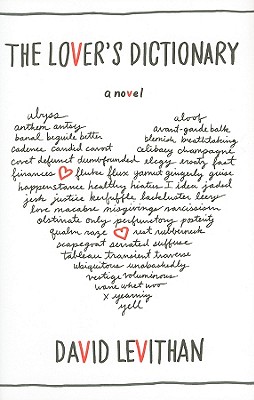 THE LOVER'S DICTIONARY
a novel
abyss aloof
anthem antsy avant-garde balk
banal beguile better blemish breathtaking
cadence candid cavort celibacy champagne
covet defunct dumbfounded elegy ersatz fast
finances fluke flux gamut gingerly grise
happenstance healthy hiatus I idea jaded
jerk justice kerfuffle lackluster leery
love macabre misgivings narcissism
obstinate only perfunctory posterity
qualm raze rest rubberneck
scapegoat serrated suffuse
tableau transient traverse
ubiquitous unabashedly
vestige voluminous
wane whet woo
x yearning
yell
DAVID LEVITHAN